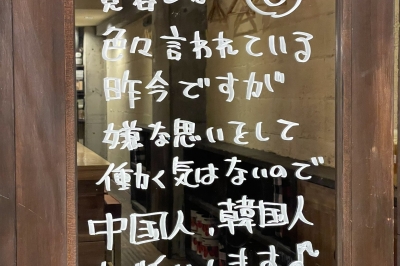 色々言われている
昨今ですが
嫌な思いをして
働く気はないので
中国人、韓国人
します♪